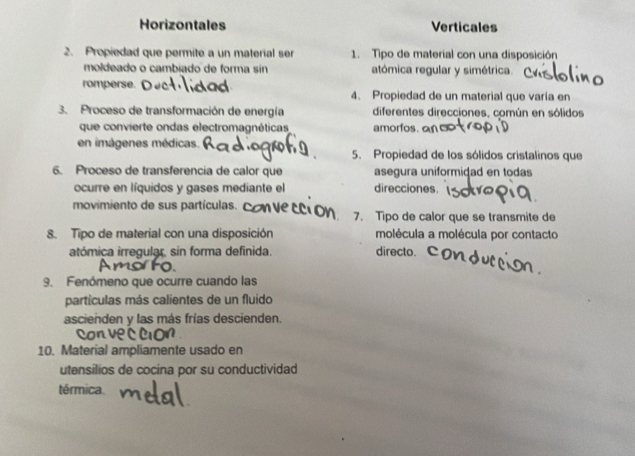 Horizontales
2. Propiedad que permite a un material ser
moldeado o cambiado de forma sin
romperse. Ductilidad.
3. Proceso de transformación de energía
que convierte ondas electromagnéticas
en imágenes médicas. Radiografia.
6. Proceso de transferencia de calor que
ocurre en líquidos y gases mediante el
movimiento de sus partículas. convección.
8. Tipo de material con una disposición
atómica irregular, sin forma definida.
Amorfo.
9. Fenómeno que ocurre cuando las
partículas más calientes de un fluido
ascienden y las más frías descienden.
convección
10. Material ampliamente usado en
utensilios de cocina por su conductividad
térmica. metal.
Verticales
1. Tipo de material con una disposición
atómica regular y simétrica. Cristolino
4. Propiedad de un material que varía en
diferentes direcciones, común en sólidos
amorfos.
5. Propiedad de los sólidos cristalinos que
asegura uniformidad en todas
direcciones. isotropia.
7. Tipo de calor que se transmite de
molécula a molécula por contacto
directo. conduccion.